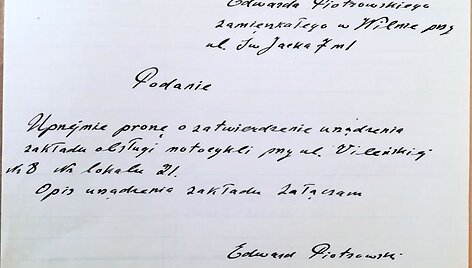 Edwarda Piotrowskiego
zamieszkałego w Wilnie przy
ul. Św Jacka 7 m 1
Podanie
Uprzejmie proszę o zatwierdzenie urządzenia
zakładu obsługi motocykli przy ul. Wileńskiej
№ 8 № lokalu 21.
Opis urządzenia zakładu załączam
Edward Piotrowski